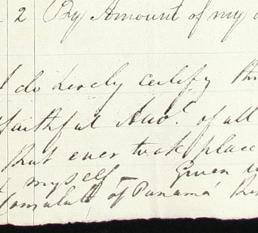 2 By Amount of my
I do hereby certify th
faithful Acct. of all
that ever took place
myself Given u
Consulate of Panamá